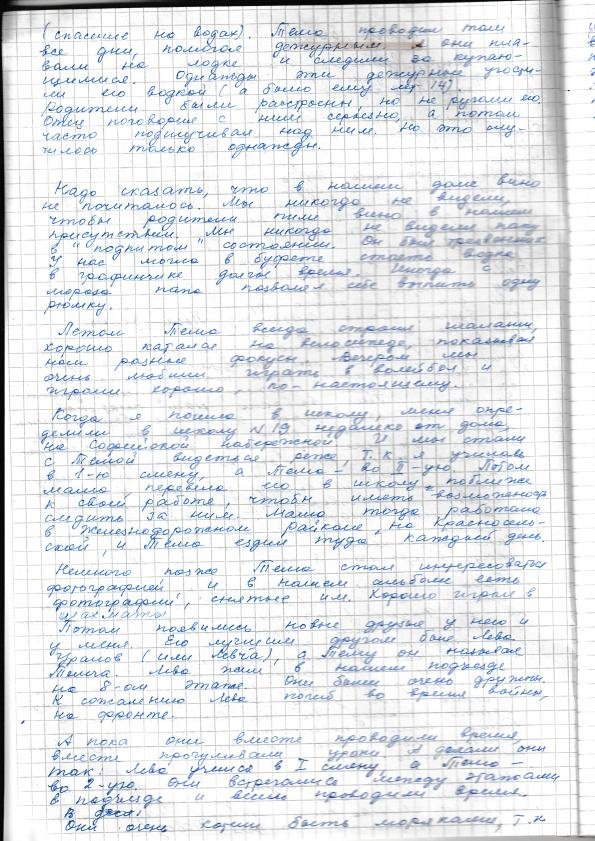 (спасшие на водах). Тёма проводил там
все дни, помогая дежурным. А они пла-
вали на лодке и следили за купаю-
щимися. Однажды эти дежурные угости-
ли его водкой (а было ему лет 14).
Родители были расстроены, но не ругали его.
Отец поговорил с ним серьезно, а потом
часто подшучивал над ним. Но это слу-
чилось только однажды.
Надо сказать, что в нашем доме вино
не почиталось. Мы никогда не видели,
чтобы родители пили вино в нашем
присутствии. Мы никогда не видели папу
в "подпитом" состоянии. Он был трезвенник
У нас могла в буфете стоять водка
в графинчике долгое время. Иногда с
мороза папа позволял себе выпить одну
рюмку.
Летом Тёма всегда строил шалаши,
хорошо катался на велосипеде, показывая
нам разные фокусы. Вечером мы
очень любили играть в волейбол и
играли хорошо, по-настоящему.
Когда я пошла в школу, меня опре-
делили в школу N 19 недалеко от дома,
на Софийской набережной. И мы стали
с Тёмой видеться реже, т.к. я училась
в 1-ю смену, а Тёма - во II-ую. Потом
мама перевела его в школу поближе
к своей работе, чтобы иметь возможность
следить за ним. Мама тогда работала
в Железнодорожном райкоме, на Красносель-
ской, и Тёма ездил туда каждый день.
Немного позже Тёма стал интересоваться
фотографией, и в нашем альбоме есть
фотографии, снятые им. Хорошо играл в
шахматы
Потом появились новые друзья у него и
у меня. Его лучшим другом был Лёва
(или Левча), а Тёму он называл
Лёва жил в нашем подъезде
на 8-ом этаже. Они были очень дружны.
К сожалению Лёва погиб во время войны,
на фронте.
А пока они вместе проводили время,
вместе прогуливали уроки. А делали они
так: Лёва учился в I смену, а Тёма -
во 2-ую. Они встречались между этажами
в подъезде и весело проводили время.
Они очень хотели быть моряками, т.к